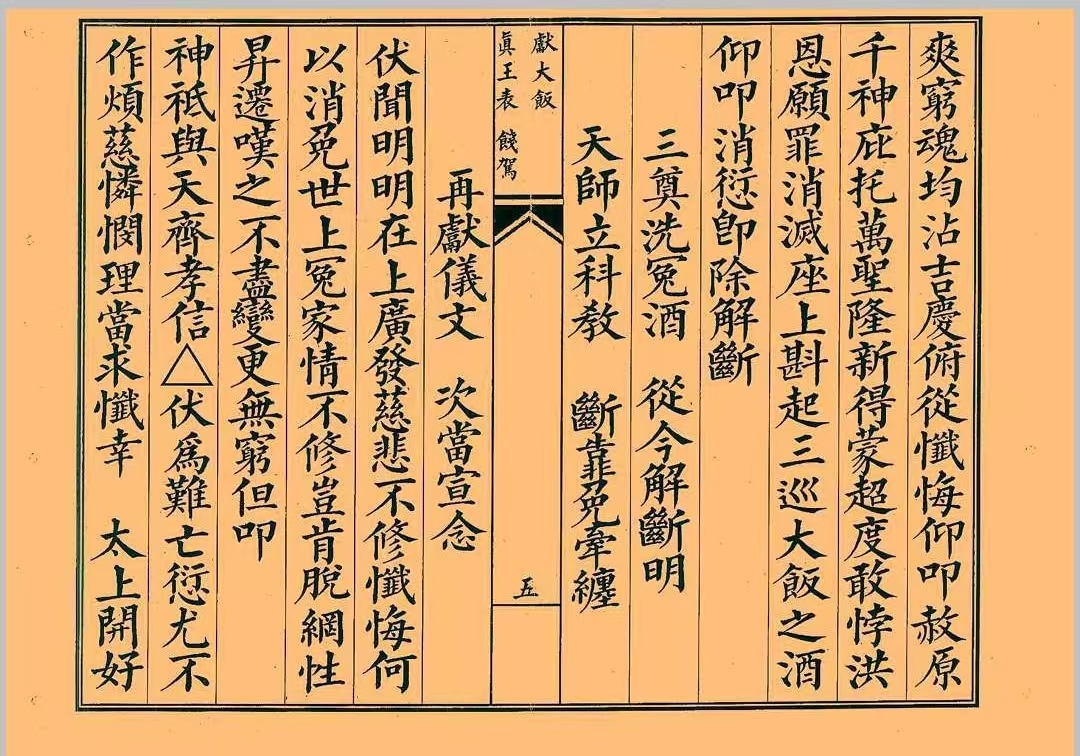 爽窮魂均沾吉慶俯從懺悔仰叩赦原
千神庇托萬聖隆新得蒙超度敢悖洪
恩願罪消滅座上斟起三巡大飯之酒
仰叩消愆卽除解斷
三奠洗冤酒 從今解斷明
天師立科教 斷靠免牽纏
獻大飯
眞王表 餞駕
五
再獻儀文 次當宣念
伏聞明明在上廣發慈悲不修懺悔何
以消免世上冤家情不修豈肯脫網性
昇遷嘆之不盡變更無窮但叩
神祇與天齊孝信△伏爲難亡愆尤不
作煩慈憐憫理當求懺幸 太上開好